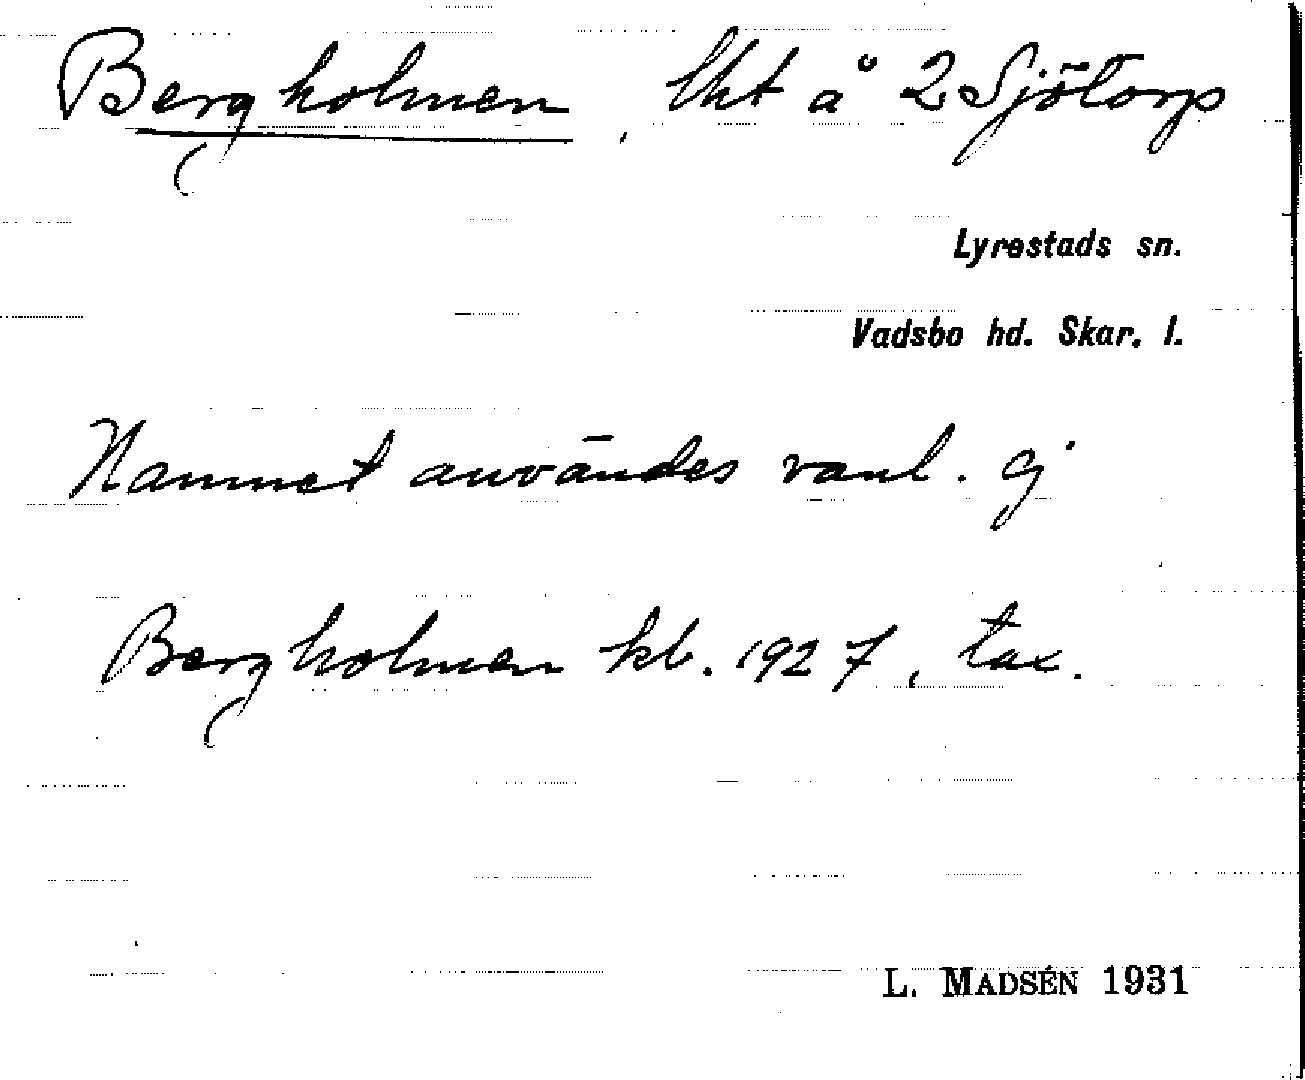 Bergholmen, lht å 2 Sjötorp
Lyrestads sn.
Vadsbo hd. Skar. l.
Namnet användes vanl. ej
Bergholmen kb. 1927, tax.
L. MADSÉN 1931